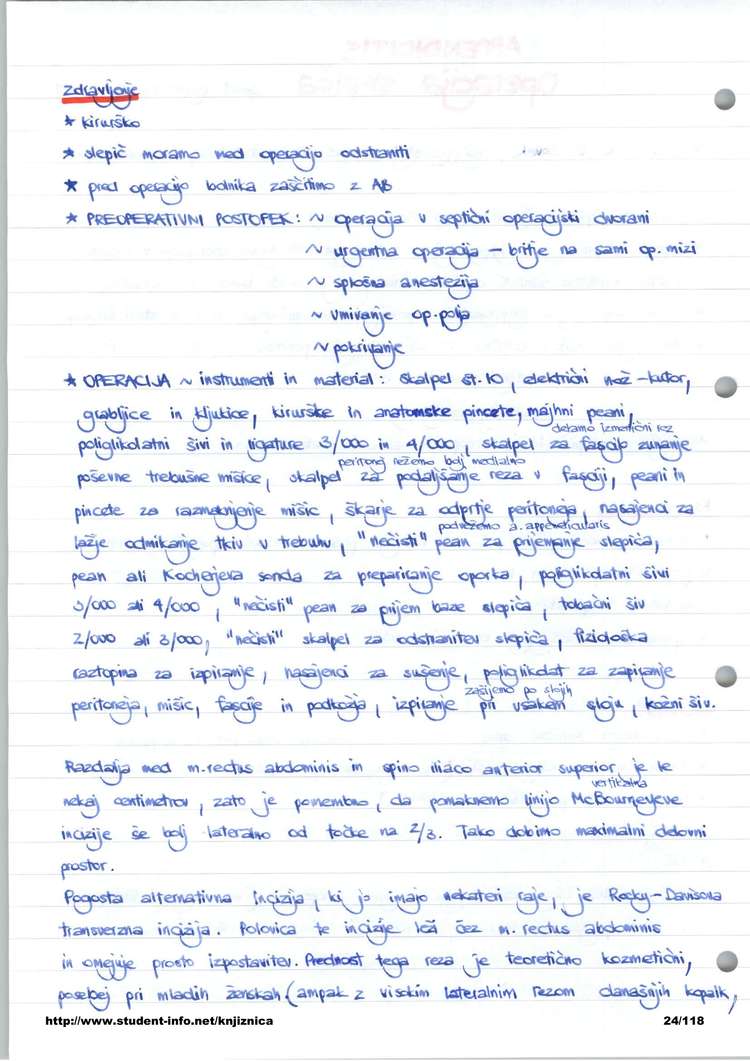 Zdravljenje
* kirurško
* slepič moramo med operacijo odstraniti
* pred operacijo bolnika zaščitimo z AB
* PREOPERATIVNI POSTOPEK: ~ operacija v septični operacijski dvorani
~ urgentna operacija – britje na sami op. mizi
~ splošna anestezija
~ umivanje op. polja
~ pokrivanje
* OPERACIJA ~ instrumenti in material: skalpel št. 10, električni nož – kutor,
grabljice in kljukice, kirurške in anatomske pincete, majhni peani,
delamo izmenični rez
poliglikolatni šivi in ligature 3/000 in 4/000, skalpel za fascijo zunanje
peritonej režemo bolj medialno
poševne trebušne mišice, skalpel za podaljšanje reza v fasciji, peani in
pincete za razmaknjenje mišic, škarje za odprtje peritoneja, nasajenci za
podvežemo a. appendicularis
lažje odmikanje tkiv v trebuhu, "nečisti" pean za prijemanje slepiča,
pean ali Kocherjeva sonda za prepariranje oporka, poliglikolatni šivi
3/000 ali 4/000, "nečisti" pean za prijem baze slepiča, tobačni šiv
2/000 ali 3/000, "nečisti" skalpel za odstranitev slepiča, fiziološka
raztopina za izpiranje, nasajenci za sušenje, poliglikolat za zapiranje
zašijemo po slojih
peritoneja, mišic, fascije in podkožja, izpiranje pri vsakem sloju, kožni šiv.
Razdalja med m. rectus abdominis in spino iliaco anterior superior je le
vertikalna
nekaj centimetrov, zato je pomembno, da pomaknemo linijo McBourneyeve
incizije še bolj lateralno od točke na 2/3. Tako dobimo maximalni delovni
prostor.
Pogosta alternativna incizija, ki jo imajo nekateri raje, je Rocky-Davisova
transverzna incizija. Polovica te incizije leži čez m. rectus abdominis
in omejuje prosto izpostavitev. Prednost tega reza je teoretično kozmetični,
posebej pri mladih ženskah (ampak z visokim lateralnim rezom današnjih kopalk,
http://www.student-info.net/knjiznica
24/118